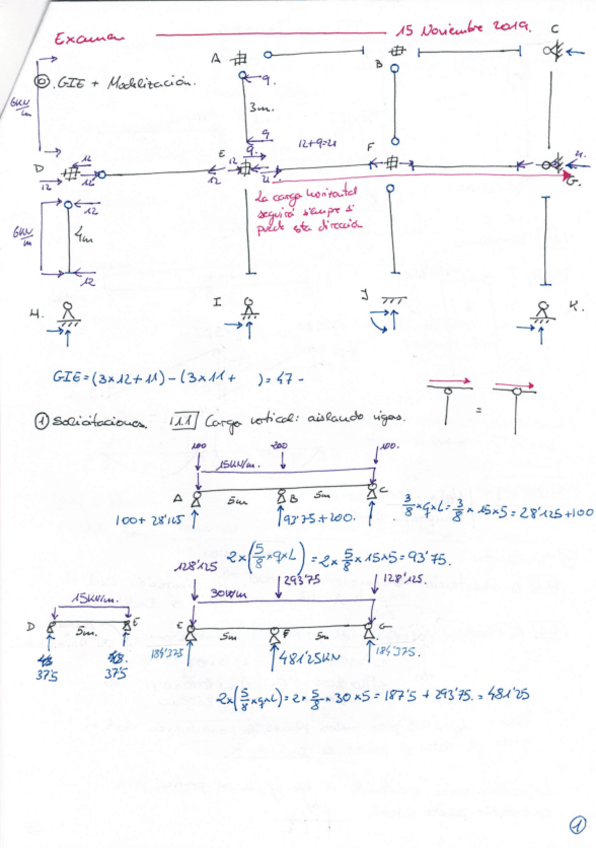 Examen 15 Noviembre 2019.
C
A
B
⓪ GIE + Modelización.
9.
3m.
6KN/m
9
12+9=21
D
12
12
12
E
9.
12
12
21
F
21.
G.
La carga horizontal
seguirá siempre si
puede esta dirección
6KN/m
12
4m
12
H.
I
J
K.
GIE = (3x12+11) - (3x11+ ) = 47 -
=
① Solicitaciones. 1.1.1 Carga vertical: aislando vigas.
100
200
100.
15KN/m.
A
5m
B
5m
C
100 + 28'125
93'75 + 200.
3/8 x q x L = 3/8 x 15 x 5 = 28'125 + 100
2x(5/8 x q x L) = 2 x 5/8 x 15 x 5 = 93'75.
128'125
293'75
128'125.
15KN/m.
30KN/m
D
5m.
E
E
5m
F
5m
G
37'5
37'5
184'375
481'25KN
184'375.
2x(5/8 x q x L) = 2 x 5/8 x 30 x 5 = 187'5 + 293'75. = 481'25
①